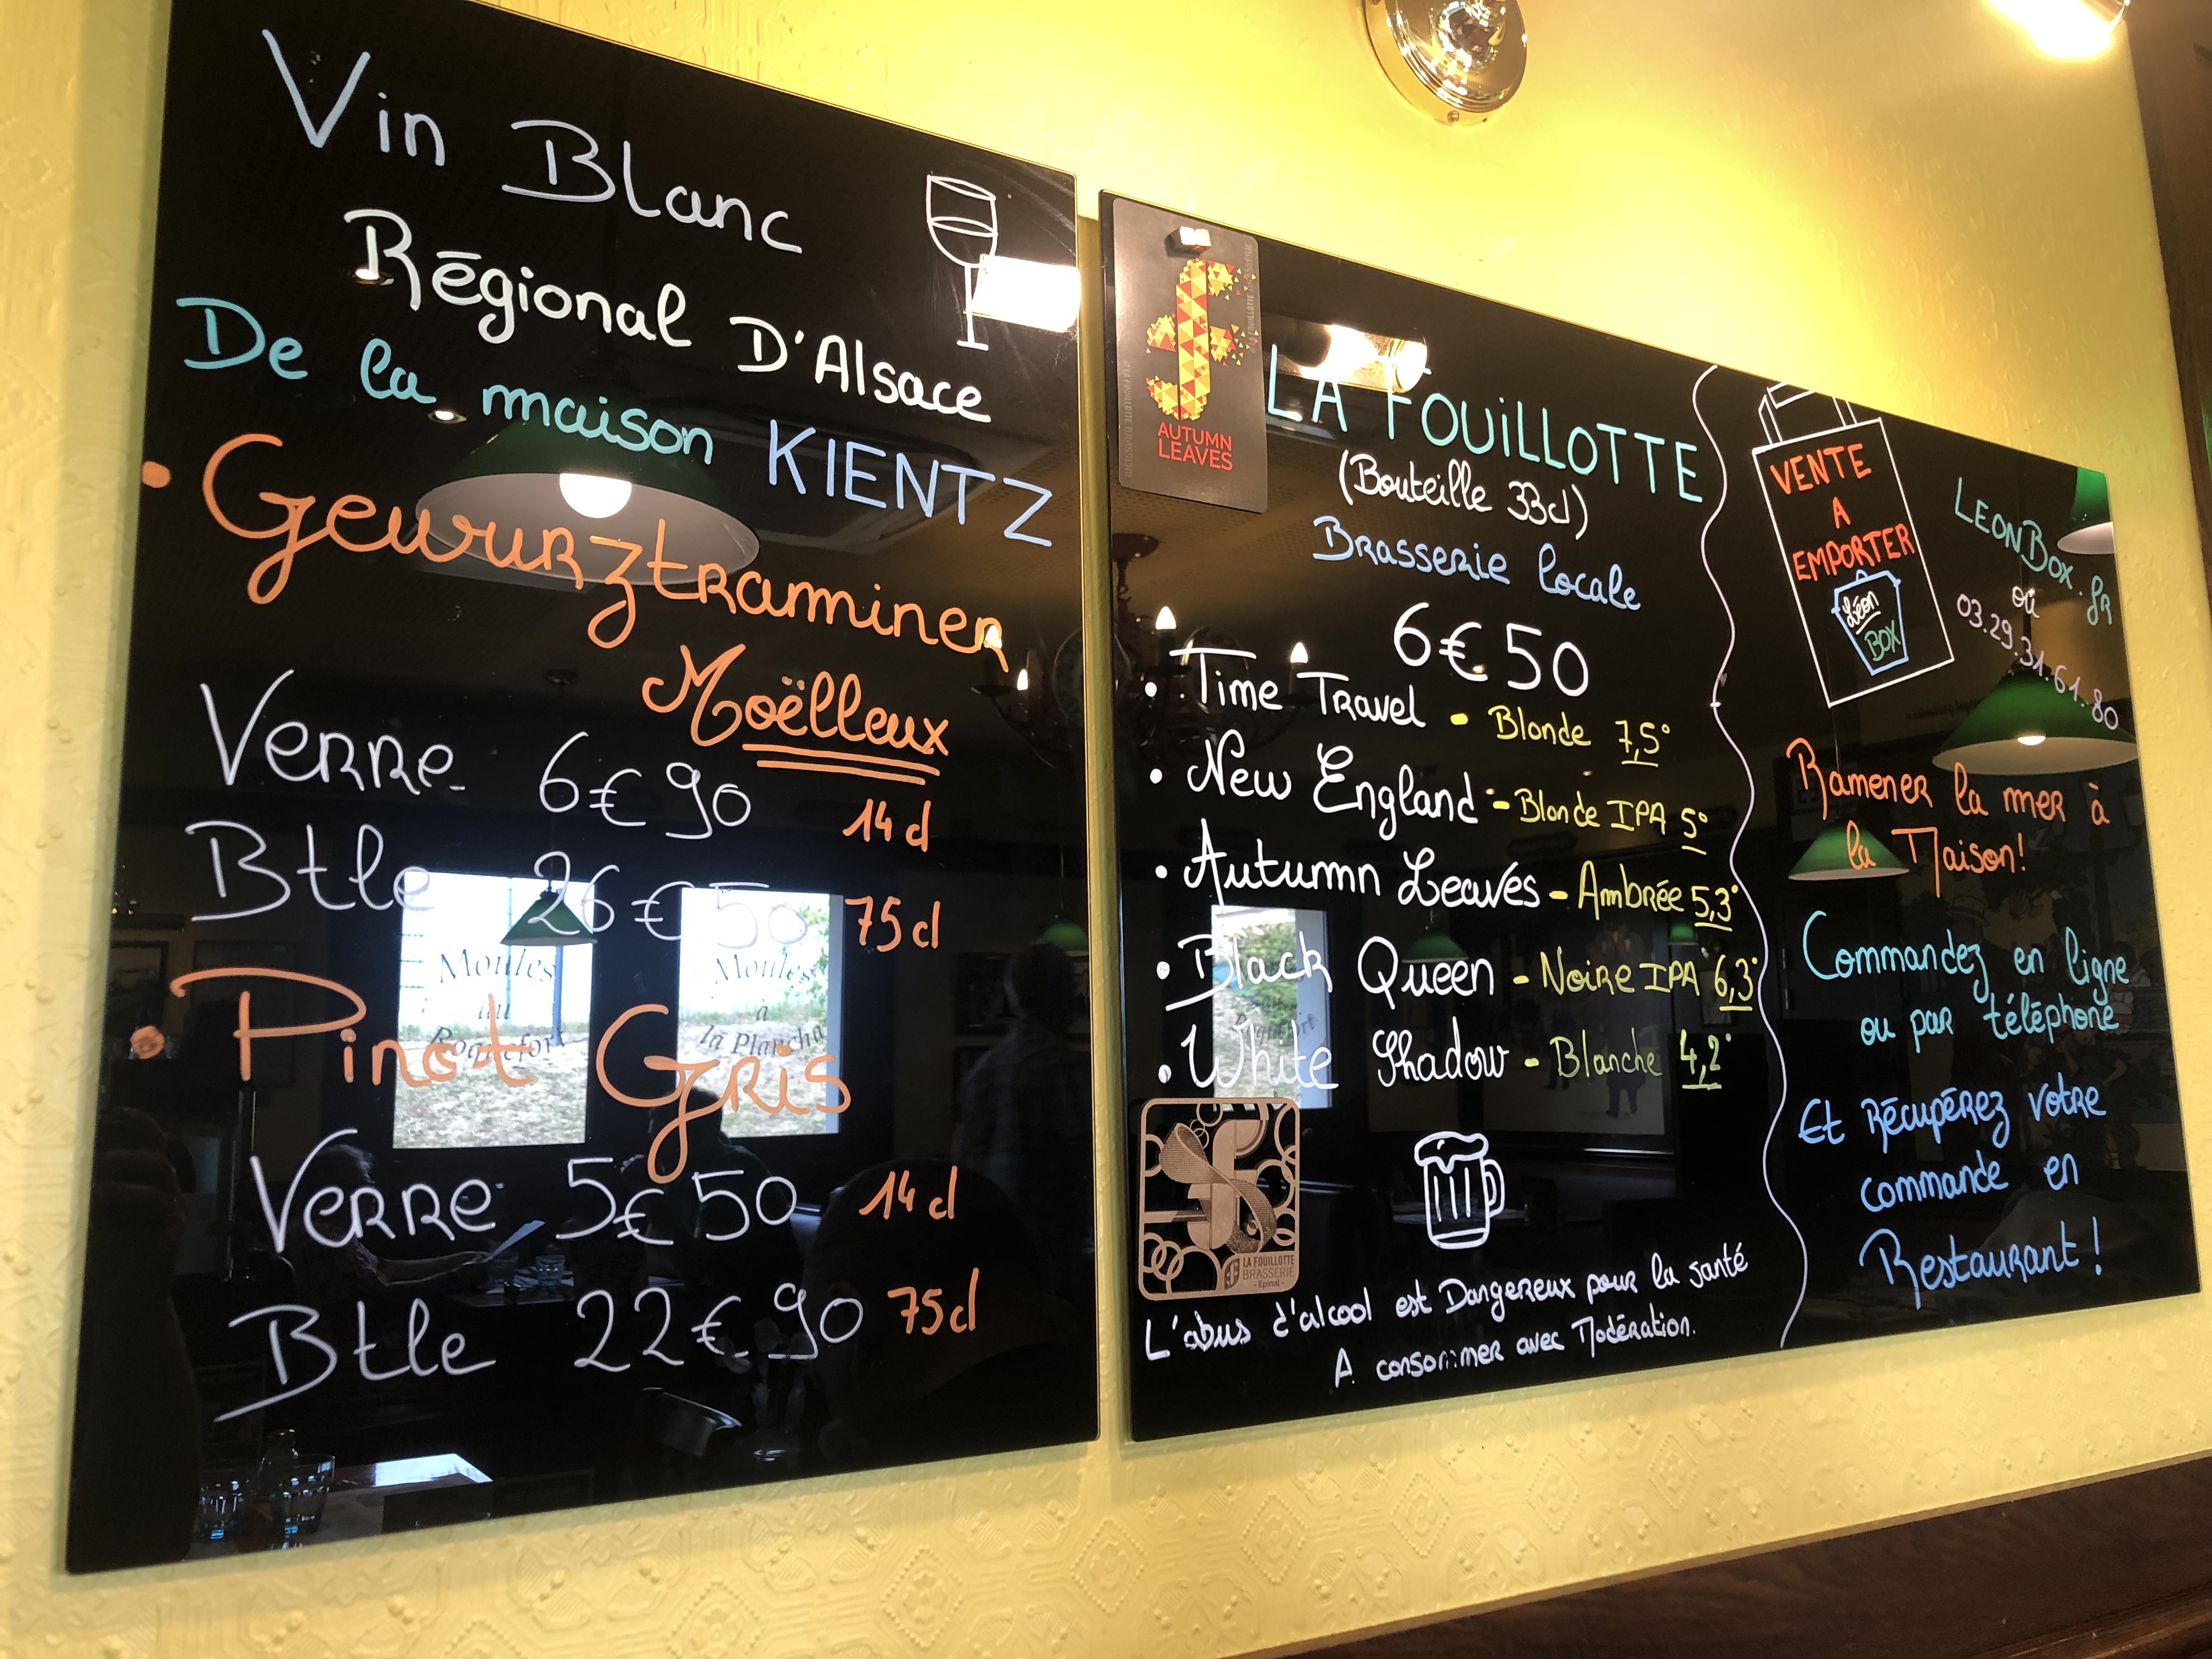 Vin Blanc
Régional D'Alsace
De la maison KIENTZ
• Gewurztraminer
Moëlleux
Verre 6€90 14 cl
Btle 26€50 75 cl
• Pinot Gris
Verre 5€50 14 cl
Btle 22€90 75 cl
Moules
au
Roquefort
Moules
à
la Plancha
AUTUMN
LEAVES
LA FOUiLLOTTE
(Bouteille 33cl)
Brasserie locale
6€50
• Time Travel - Blonde 7,5°
• New England - Blonde IPA 5°
• Autumn Leaves - Ambrée 5,3°
• Black Queen - Noire IPA 6,3°
• White Shadow - Blanche 4,2°
LA FOUILLOTTE
BRASSERIE
- Epinal -
L'abus d'alcool est Dangereux pour la santé
A consommer avec Modération.
VENTE
A
EMPORTER
Léon
BOX
LEONBOX.fr
où
03.29.31.61.80
Ramener la mer à
la Maison!
Commandez en ligne
ou par téléphone
Et Récupérez votre
commande en
Restaurant!